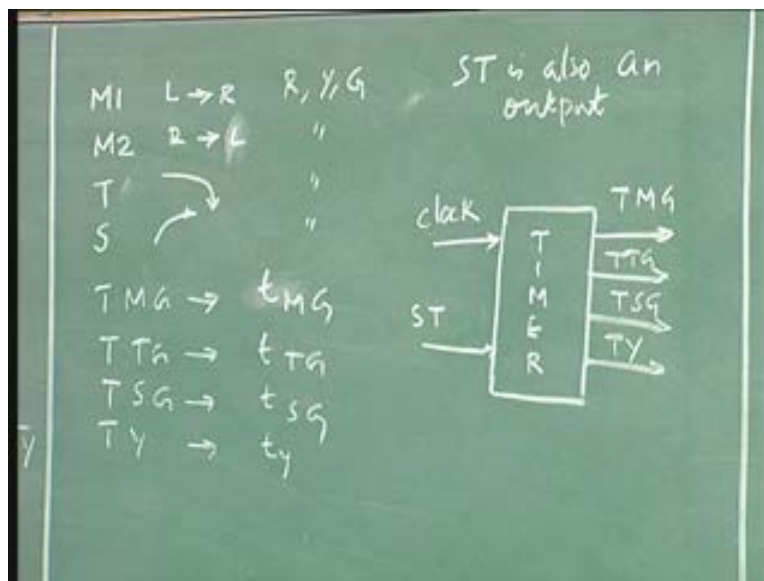 M1 L→R R, Y, G
M2 R→L "
T "
S "
TMG → tMG
TTG → tTG
TSG → tSG
TY → ty
ST is also an
output
clock
ST
TIMER
TMG
TTG
TSG
TY
y